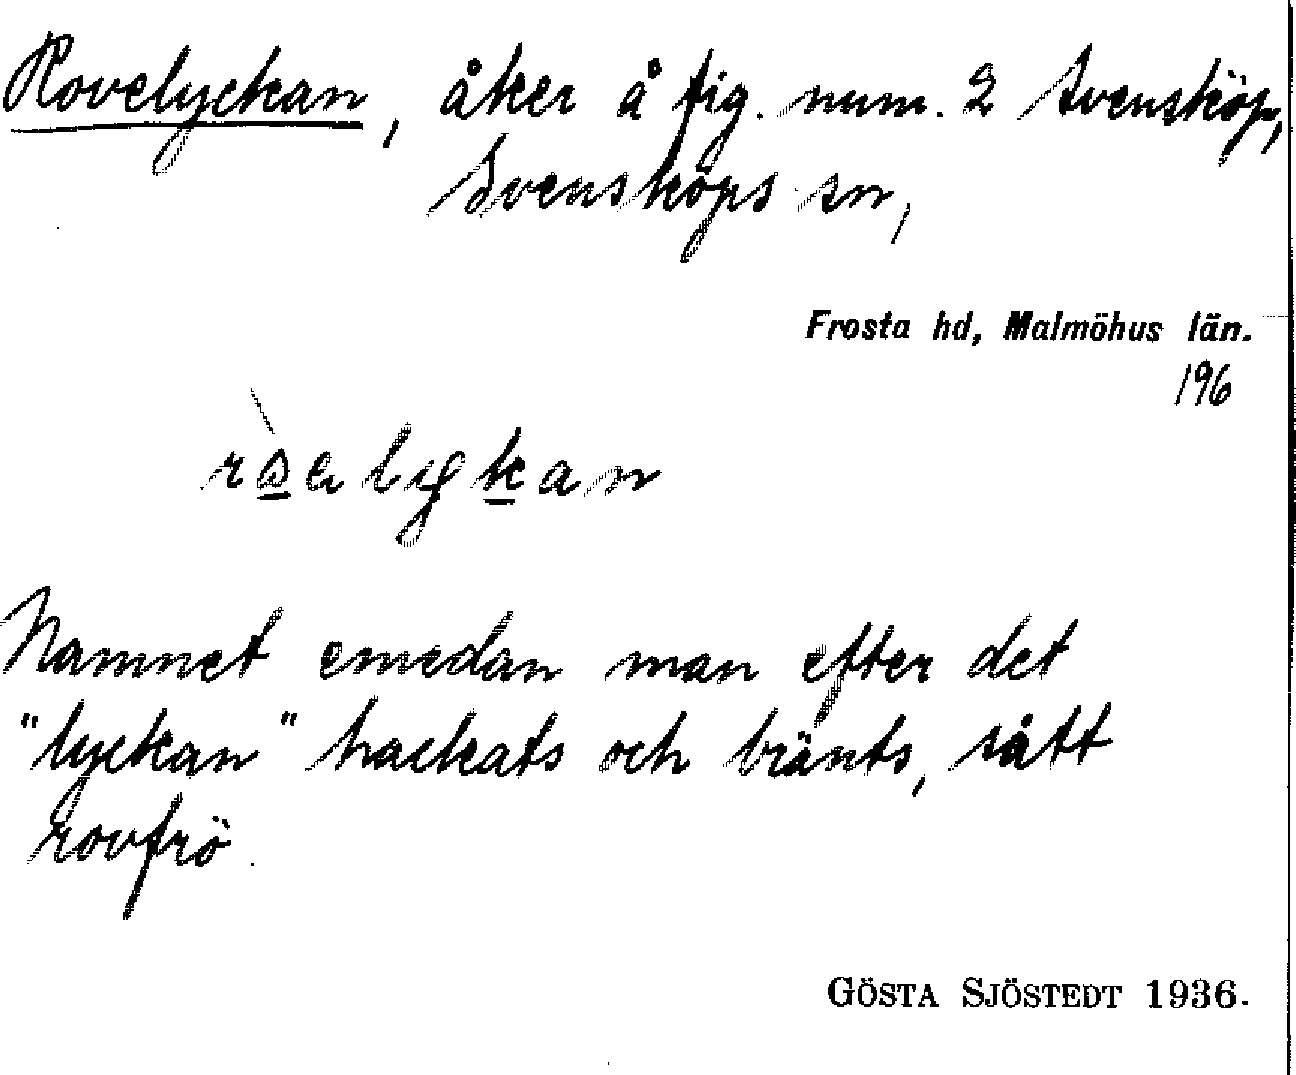 Rovelyckan, åker å fig. num. 2 Svensköp,
Svensköps sn,
Frosta hd, Malmöhus län.
196
Namnet emedan man efter det
"lyckan" hackats och bränts, sått
rovfrö.
GÖSTA SJÖSTEDT 1936.